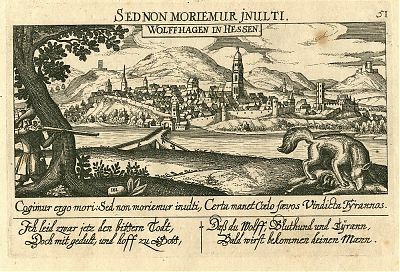 SED NON MORIEMUR JNULTI.
51
WOLFFHAGEN IN HESSEN.
Cogimur ergo mori: Sed non moriemur inulti, Certa manet Cœlo sævos Vindicta Tyrannos.
Ich leid zwar jetz den bittern Todt,
Doch mit gedult, und hoff zu Gott,
Daß du Wolff, Bluthund und Tÿrann,
Bald wirst bekommen deinen Mann.